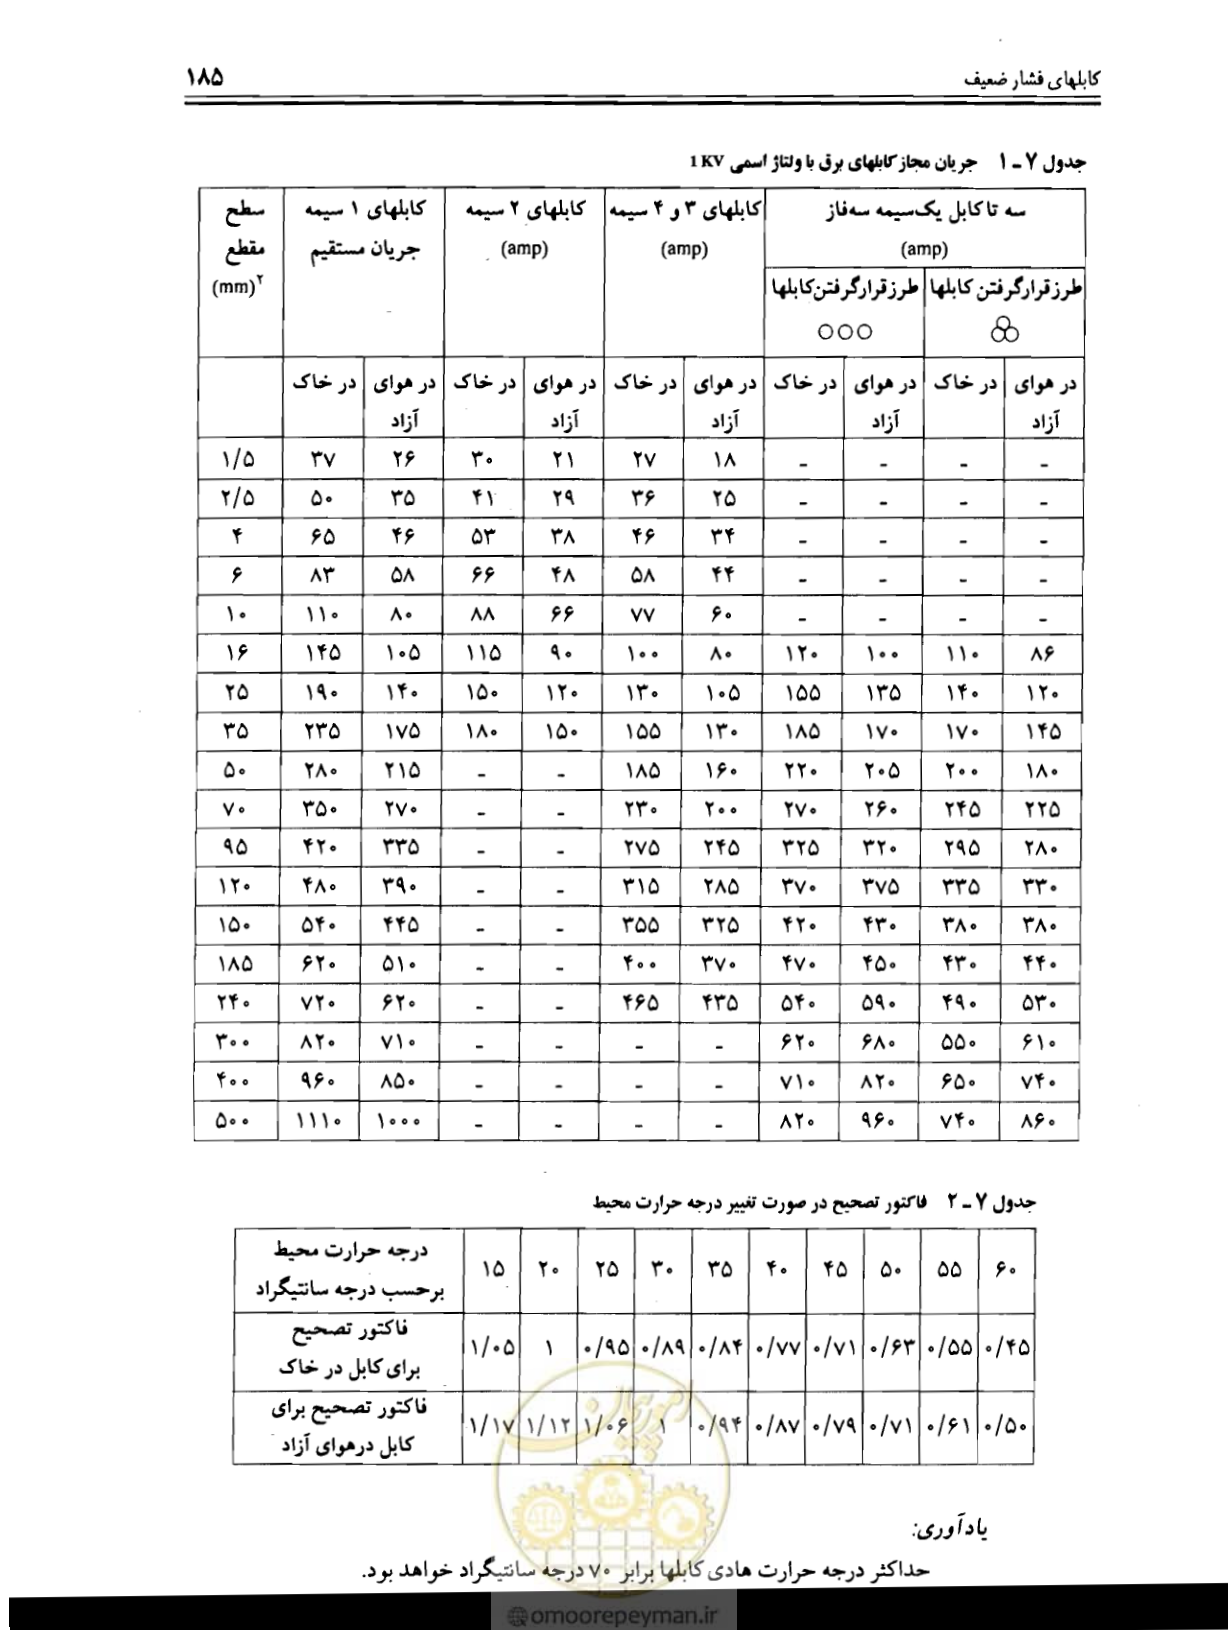 کابلهای فشار ضعیف ۱۸۵
جدول ۷ـ۱ جریان مجاز کابلهای برق با ولتاژ اسمی 1 KV
سطح مقطع (mm)۲ | کابلهای ۱ سیمه جریان مستقیم | کابلهای ۲ سیمه (amp) | کابلهای ۳ و ۴ سیمه (amp) | سه تا کابل یک‌سیمه سه‌فاز (amp)
طرز قرار گرفتن کابلها ○○○ | طرز قرار گرفتن کابلها
در خاک | در هوای آزاد | در خاک | در هوای آزاد | در خاک | در هوای آزاد | در خاک | در هوای آزاد | در خاک | در هوای آزاد
۱/۵ | ۳۷ | ۲۶ | ۳۰ | ۲۱ | ۲۷ | ۱۸ | - | - | - | -
۲/۵ | ۵۰ | ۳۵ | ۴۱ | ۲۹ | ۳۶ | ۲۵ | - | - | - | -
۴ | ۶۵ | ۴۶ | ۵۳ | ۳۸ | ۴۶ | ۳۴ | - | - | - | -
۶ | ۸۳ | ۵۸ | ۶۶ | ۴۸ | ۵۸ | ۴۴ | - | - | - | -
۱۰ | ۱۱۰ | ۸۰ | ۸۸ | ۶۶ | ۷۷ | ۶۰ | - | - | - | -
۱۶ | ۱۴۵ | ۱۰۵ | ۱۱۵ | ۹۰ | ۱۰۰ | ۸۰ | ۱۲۰ | ۱۰۰ | ۱۱۰ | ۸۶
۲۵ | ۱۹۰ | ۱۴۰ | ۱۵۰ | ۱۲۰ | ۱۳۰ | ۱۰۵ | ۱۵۵ | ۱۳۵ | ۱۴۰ | ۱۲۰
۳۵ | ۲۳۵ | ۱۷۵ | ۱۸۰ | ۱۵۰ | ۱۵۵ | ۱۳۰ | ۱۸۵ | ۱۷۰ | ۱۷۰ | ۱۴۵
۵۰ | ۲۸۰ | ۲۱۵ | - | - | ۱۸۵ | ۱۶۰ | ۲۲۰ | ۲۰۵ | ۲۰۰ | ۱۸۰
۷۰ | ۳۵۰ | ۲۷۰ | - | - | ۲۳۰ | ۲۰۰ | ۲۷۰ | ۲۶۰ | ۲۴۵ | ۲۲۵
۹۵ | ۴۲۰ | ۳۳۵ | - | - | ۲۷۵ | ۲۴۵ | ۳۲۵ | ۳۲۰ | ۲۹۵ | ۲۸۰
۱۲۰ | ۴۸۰ | ۳۹۰ | - | - | ۳۱۵ | ۲۸۵ | ۳۷۰ | ۳۷۵ | ۳۳۵ | ۳۳۰
۱۵۰ | ۵۴۰ | ۴۴۵ | - | - | ۳۵۵ | ۳۲۵ | ۴۲۰ | ۴۳۰ | ۳۸۰ | ۳۸۰
۱۸۵ | ۶۲۰ | ۵۱۰ | - | - | ۴۰۰ | ۳۷۰ | ۴۷۰ | ۴۵۰ | ۴۳۰ | ۴۴۰
۲۴۰ | ۷۲۰ | ۶۲۰ | - | - | ۴۶۵ | ۴۳۵ | ۵۴۰ | ۵۹۰ | ۴۹۰ | ۵۳۰
۳۰۰ | ۸۲۰ | ۷۱۰ | - | - | - | - | ۶۲۰ | ۶۸۰ | ۵۵۰ | ۶۱۰
۴۰۰ | ۹۶۰ | ۸۵۰ | - | - | - | - | ۷۱۰ | ۸۲۰ | ۶۵۰ | ۷۴۰
۵۰۰ | ۱۱۱۰ | ۱۰۰۰ | - | - | - | - | ۸۲۰ | ۹۶۰ | ۷۴۰ | ۸۶۰
جدول ۷ـ۲ فاکتور تصحیح در صورت تغییر درجه حرارت محیط
درجه حرارت محیط برحسب درجه سانتیگراد | ۱۵ | ۲۰ | ۲۵ | ۳۰ | ۳۵ | ۴۰ | ۴۵ | ۵۰ | ۵۵ | ۶۰
فاکتور تصحیح برای کابل در خاک | ۱/۰۵ | ۱ | ۰/۹۵ | ۰/۸۹ | ۰/۸۴ | ۰/۷۷ | ۰/۷۱ | ۰/۶۳ | ۰/۵۵ | ۰/۴۵
فاکتور تصحیح برای کابل درهوای آزاد | ۱/۱۷ | ۱/۱۲ | ۱/۰۶ | ۱ | ۰/۹۴ | ۰/۸۷ | ۰/۷۹ | ۰/۷۱ | ۰/۶۱ | ۰/۵۰
امور پیمان
یادآوری:
حداکثر درجه حرارت هادی کابلها برابر ۷۰ درجه سانتیگراد خواهد بود.
@omoorepeyman.ir